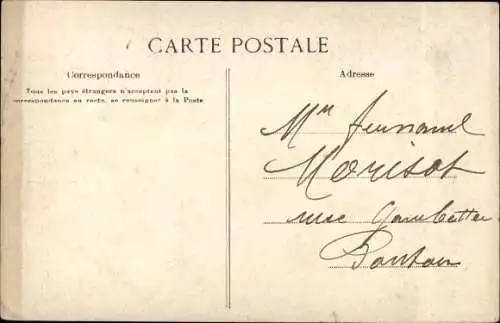 CARTE POSTALE
Correspondance
Tous les pays étrangers n'acceptent pas la
correspondance au recto, se renseigner à la Poste
Adresse
Mr Fernand
Morisot
rue Gambetta